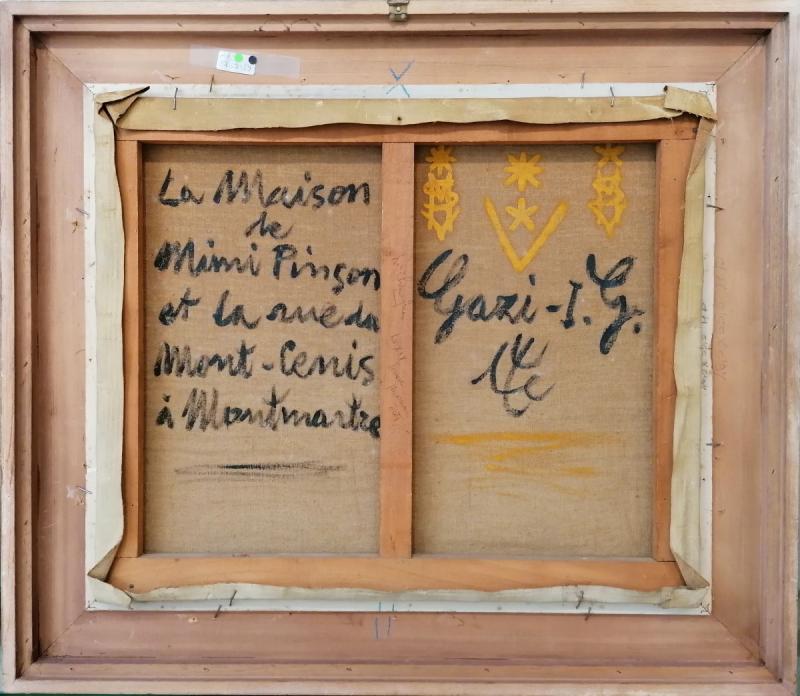 La Maison
de
Mimi Pinson
et la rue du
Mont-Cenis
à Montmartre
Gazi-I.G.